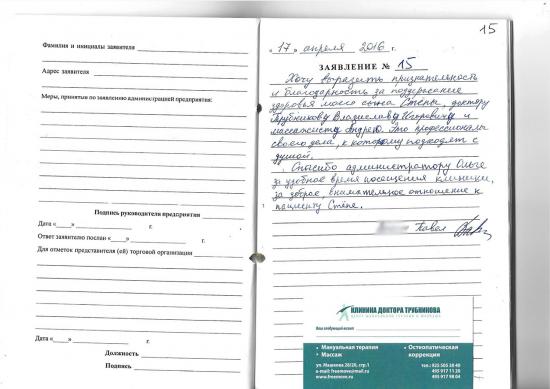 Фамилия и инициалы заявителя
Адрес заявителя
Меры, принятые по заявлению администрацией предприятия:
Подпись руководителя предприятия
Дата «___» г.
Ответ заявителю послан «___» г.
Для отметок представителя (ей) торговой организации
Дата «___» г.
Должность
Подпись
15
«17» апреля 2016 г.
ЗАЯВЛЕНИЕ № 15
Хочу выразить признательность
и благодарность за поддержание
здоровья моего сына Стёпы, доктору
Трубникову Владиславу Игоревичу и
массажисту Андрею. Это профессионалы
своего дела, к которому подходят с
душой.
Спасибо администратору Ольге
за удобное время посещения клиники,
за доброе внимательное отношение к
пациенту Стёпе.
Павел
КЛИНИКА ДОКТОРА ТРУБНИКОВА
Ваш следующий визит
• Мануальная терапия
• Массаж
• Остеопатическая
коррекция
ул. Машкова 28/20, стр.1
www.freemove.ru
тел.: 925 505 20 40
495 917 11 20
495 917 98 04